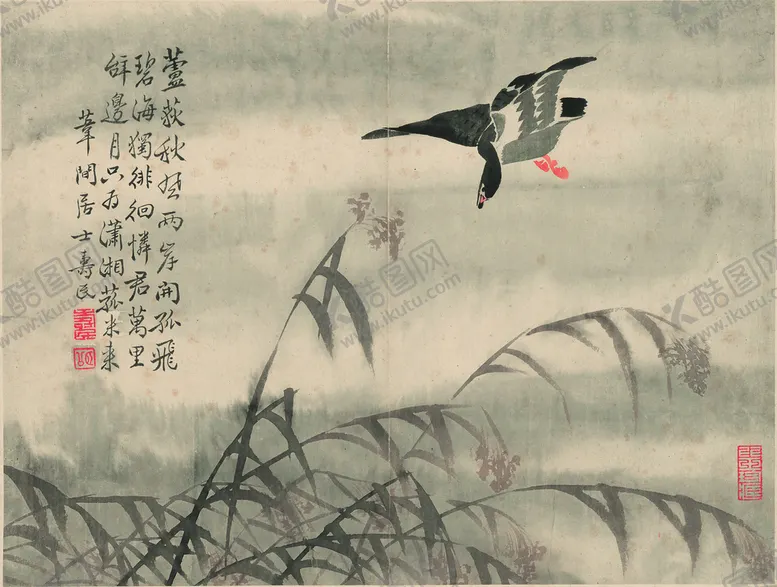 蘆荻秋花两岸開孤飛
碧海獨徘徊憐君萬里
辤邊月只为瀟湘菰米来
葦間居士壽民
酷图网
www.ikutu.com